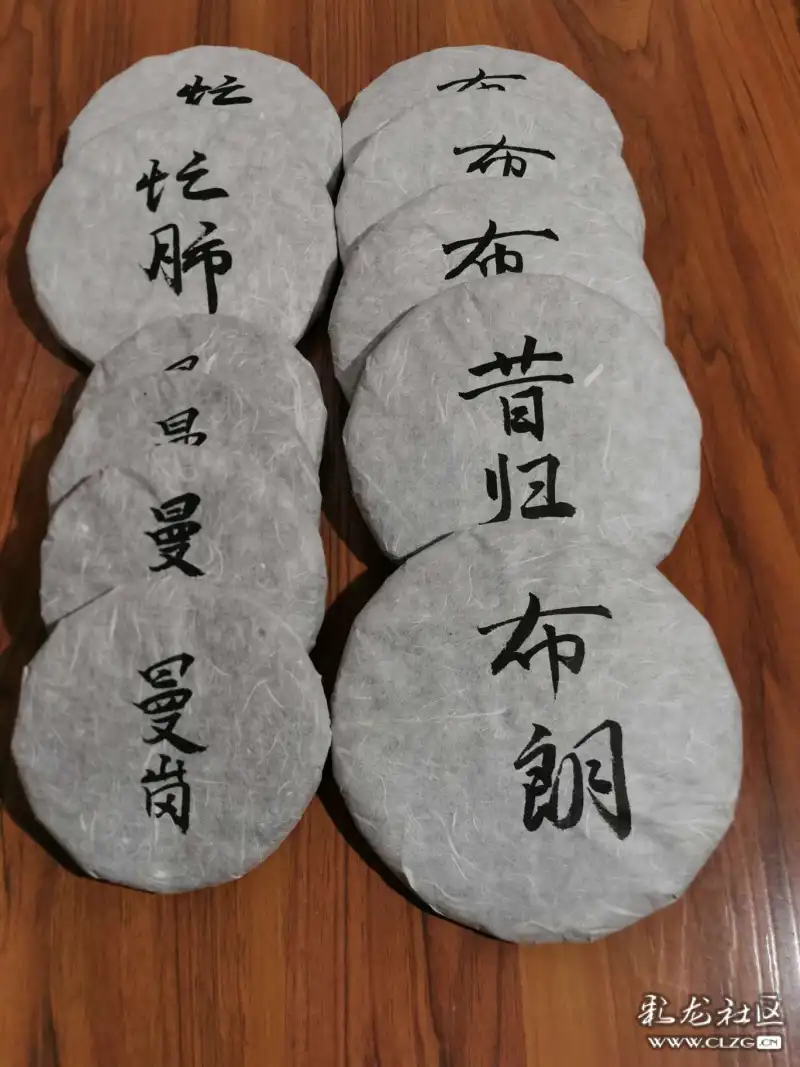 忙
忙
肺
曼
曼
岗
布
布
布
昔
归
布
朗
彩龙社区
WWW.CLZG.CN